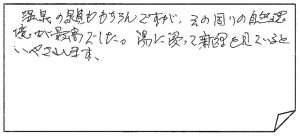 温泉の泉質ももちろんですが、その周りの自然環
境が最高でした。湯に浸って新緑を見ていると
いやされます。